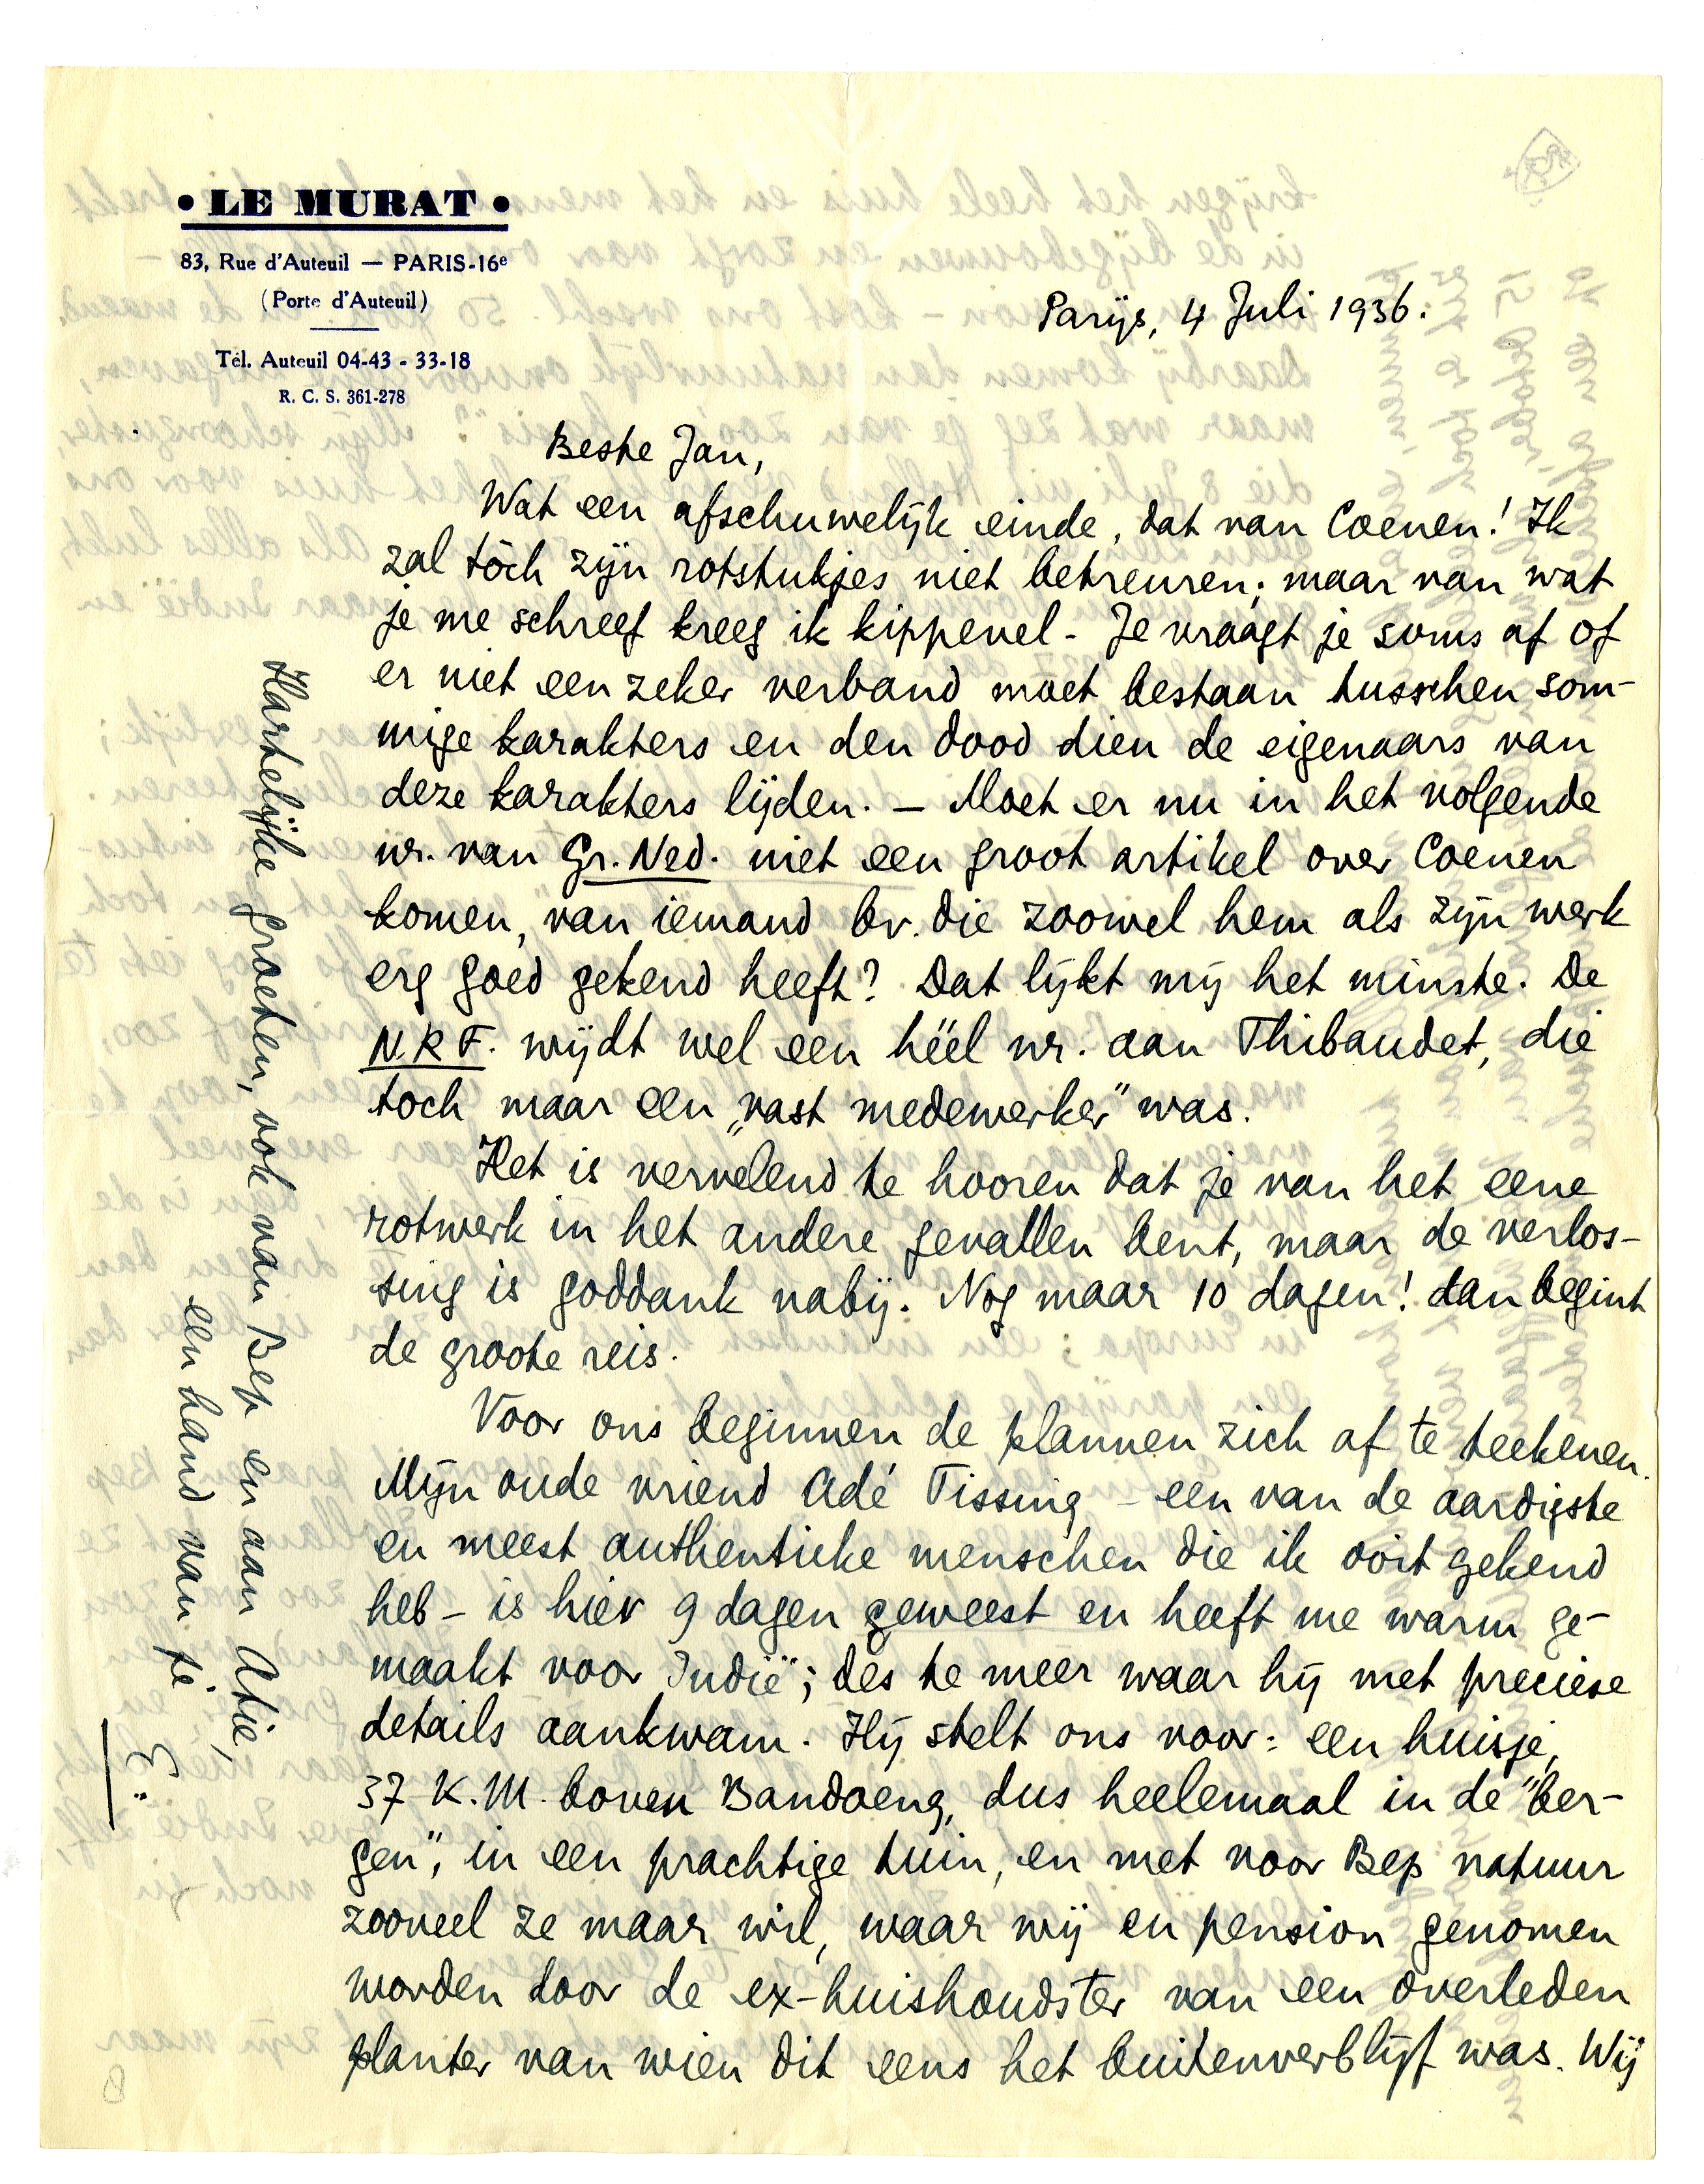 • LE MURAT •
83, Rue d'Auteuil — PARIS-16e
(Porte d'Auteuil)
Tél. Auteuil 04-43 - 33-18
R. C. S. 361-278
Parijs, 4 Juli 1936.
Beste Jan,
Wat een afschuwelijk einde, dat van Coenen! Ik
zal tòch zijn rotstukjes niet betreuren; maar van wat
je me schreef kreeg ik kippevel. Je vraagt je soms af of
er niet een zeker verband moet bestaan tusschen som-
mige karakters en den dood dien de eigenaars van
deze karakters lijden. — Moet er nu in het volgende
nr. van Gr. Ned. niet een groot artikel over Coenen
komen, van iemand bv. die zoowel hem als zijn werk
erg goed gekend heeft? Dat lijkt mij het minste. De
N.R.F. wijdt wel een héél nr. aan Thibaudet, die
toch maar een „vast medewerker" was.
Het is vervelend te hooren dat je van het eene
rotwerk in het andere gevallen bent, maar de verlos-
sing is goddank nabij. Nog maar 10 dagen! dan begint
de groote reis.
Voor ons beginnen de plannen zich af te teekenen.
Mijn oude vriend Adé Tissing – een van de aardigste
en meest authentieke menschen die ik ooit gekend
heb – is hier 9 dagen geweest en heeft me warm ge-
maakt voor Indië; des te meer waar hij met precieze
details aankwam. Hij stelt ons voor: een huisje,
37 K.M. boven Bandoeng, dus heelemaal in de "ber-
gen", in een prachtige tuin, en met voor Bep natuur
zooveel ze maar wil, waar wij en pension genomen
worden door de ex-huishoudster van een overleden
planter van wien dit eens het buitenverblijf was. Wij
Hartelijke groeten, ook van Bep en aan Atie,
een hand van je
E.